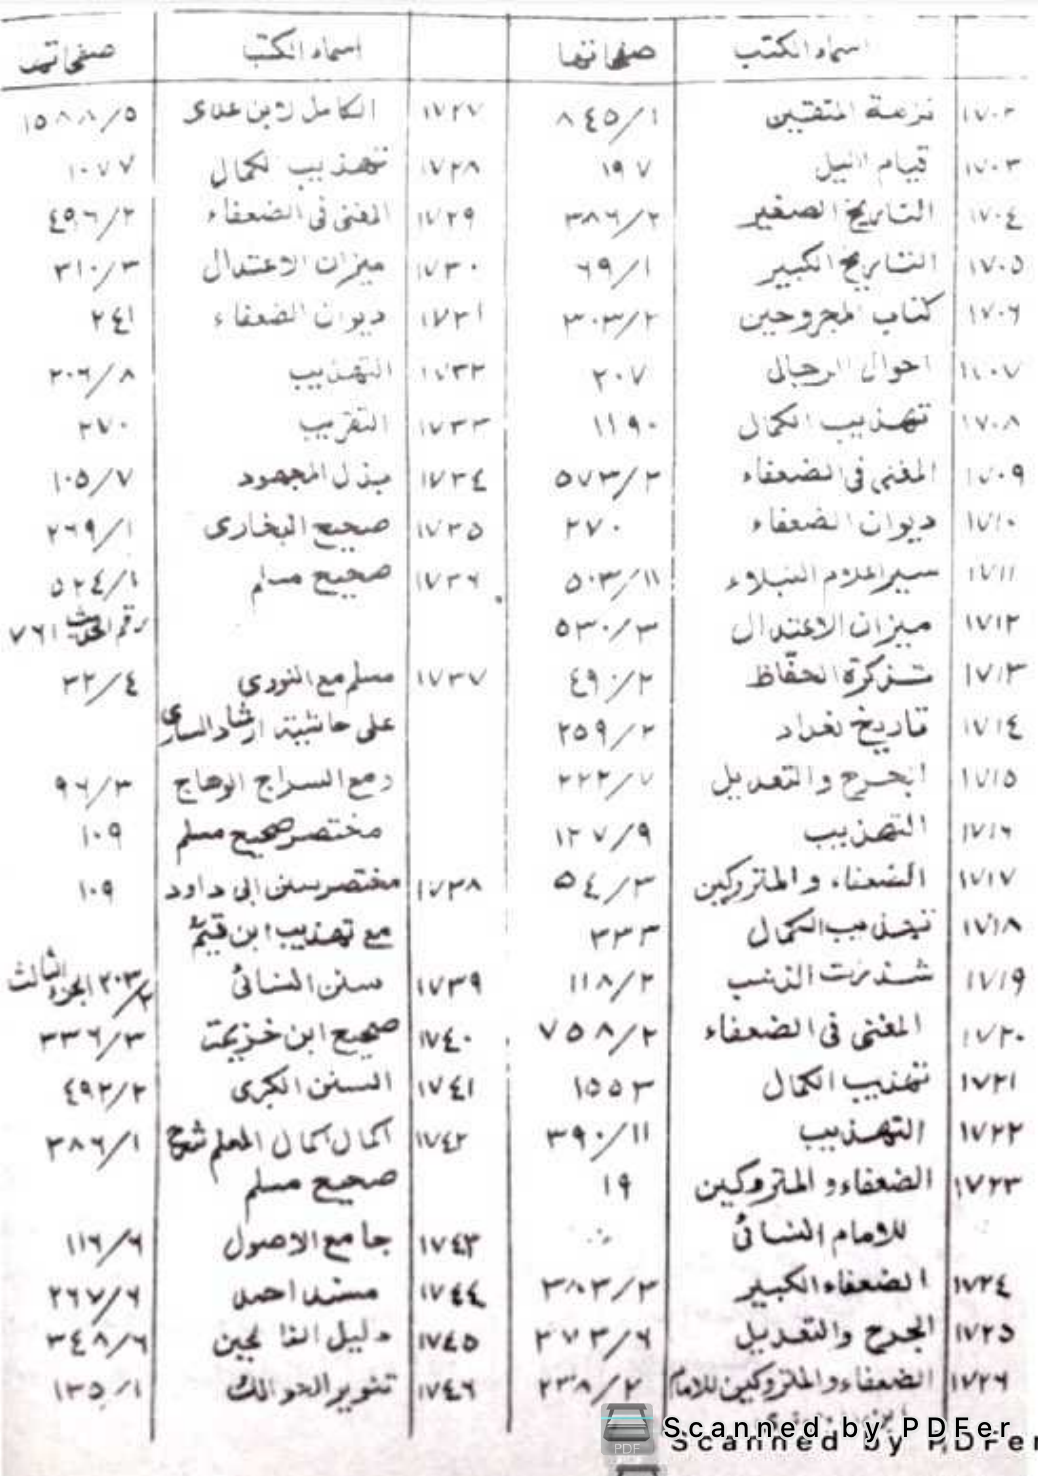 اسماء الكتب صفحاتها
١٧٠٢ نزهة المتقين ٨٤٥/١
١٧٠٣ قيام الليل ١٩٧
١٧٠٤ التاريخ الصغير ٣٨٦/٢
١٧٠٥ التاريخ الكبير ٦٩/١
١٧٠٦ كتاب المجروحين ٣٠٣/٢
١٧٠٧ احوال الرجال ٢٠٧
١٧٠٨ تهذيب الكمال ١١٩٠
١٧٠٩ المغنى فى الضعفاء ٥٧٣/٢
١٧١٠ ديوان الضعفاء ٢٧٠
١٧١١ سير اعلام النبلاء ٥٠٣/١١
١٧١٢ ميزان الاعتدال ٥٣٠/٣
١٧١٣ تذكرة الحفّاظ ٤٩٠/٢
١٧١٤ تاريخ بغداد ٢٥٩/٢
١٧١٥ الجرح والتعديل ٢٢٢/٧
١٧١٦ التهذيب ١٢٧/٩
١٧١٧ الضعفاء والمتروكين ٥٤/٣
١٧١٨ تهذيب الكمال ٣٣٣
١٧١٩ شذرت الذهب ١١٨/٢
١٧٢٠ المغنى فى الضعفاء ٧٥٨/٢
١٧٢١ تهذيب الكمال ١٥٥٣
١٧٢٢ التهذيب ٣٩٠/١١
١٧٢٣ الضعفاء و المتروكين ١٩
للامام النسائى
١٧٢٤ الضعفاء الكبير ٣٨٣/٣
١٧٢٥ الجرح والتعديل ٢٧٣/٦
١٧٢٦ الضعفاء والمتروكين للامام ٢٣٨/٢
اسماء الكتب صفحاتها
١٧٢٧ الكامل لابن عدى ١٥٨٨/٥
١٧٢٨ تهذيب لكمال ١٠٧٧
١٧٢٩ المغنى فى الضعفاء ٤٥٦/٢
١٧٣٠ ميزان الاعتدال ٣١٠/٣
١٧٣١ ديوان الضعفاء ٢٤١
١٧٣٢ التهذيب ٢٠٦/٨
١٧٣٣ التقريب ٢٧٠
١٧٣٤ بذل المجهود ١٠٥/٧
١٧٣٥ صحيح البخارى ٢٦٩/١
١٧٣٦ صحيح مسلم ٥٢٤/١
رقم الحديث ٧٦١
١٧٣٧ مسلم مع النورى ٣٢/٤
على حاشية ارشاد السارى
ومع السراج الوهاج ٩٦/٣
مختصر صحيح مسلم ١٠٩
١٧٣٨ مختصر سنن ابى داود ١٠٩
مع تهذيب ابن قيم
١٧٣٩ سنن النسائى ٢٠٣/٢ الجزء الثالث
١٧٤٠ صحيح ابن خزيمة ٣٣٦/٣
١٧٤١ السنن الكبرى ٤٩٢/٢
١٧٤٢ اكمال اكمال المعلم شرح ٣٨٦/١
صحيح مسلم
١٧٤٣ جامع الاصول ١١٦/٦
١٧٤٤ مسند احمد ٢٦٧/٦
١٧٤٥ دليل الفالحين ٣٤٨/٦
١٧٤٦ تنوير الحوالك ١٣٥/١
Scanned by PDFer
Scanned by PDFer
PDF